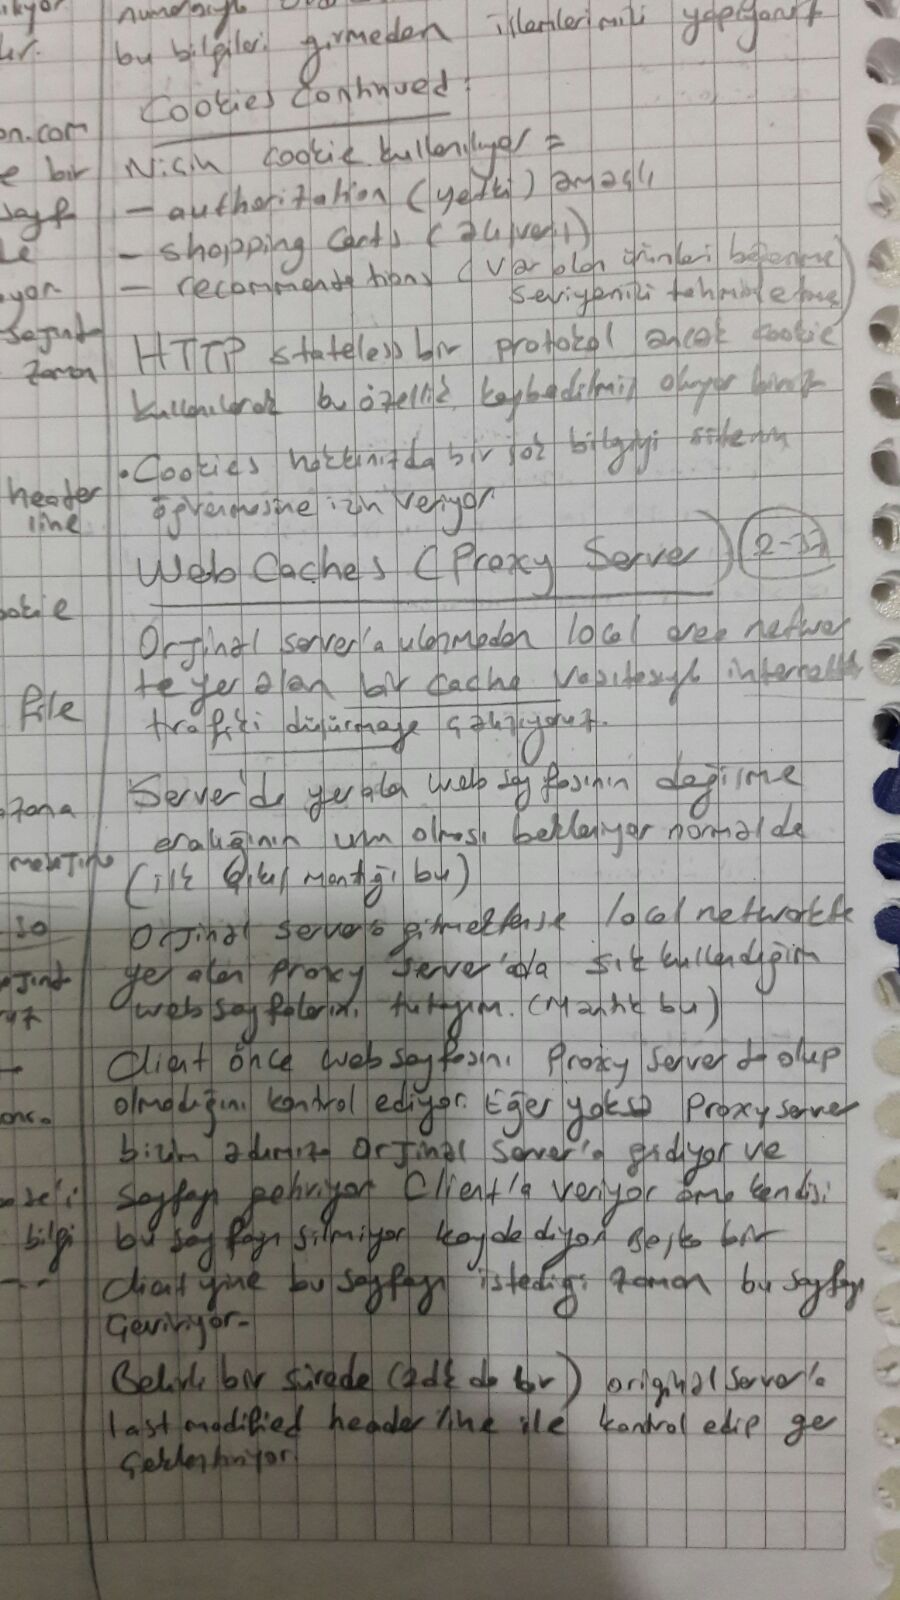 bu bilgileri girmeden işlemlerimizi yapıyoruz
Cookies Continued:
Niçin cookie kullanılıyor =
- authorization (yetki) amaçlı
- shopping carts (alışveriş)
- recommendations (var olan ürünleri beğenme
seviyenizi tahmin etme)
HTTP stateless bir protokol ancak cookie
kullanılarak bu özellik kaybedilmiş oluyor biraz
• Cookies hakkınızda bir çok bilgiyi sitenin
öğrenmesine izin veriyor
Web Caches (Proxy Server)
Orjinal server'a ulaşmadan local area networ
te yer alan bir cache vasıtasıyla internetteki
trafiği düşürmeye çalışıyoruz.
Server'da yer alan web sayfasının değişme
aralığının uzun olması bekleniyor normalde
(ilk çıkış mantığı bu)
Orjinal servera gitmektense local networkte
yer alan proxy server'da sık kullandığım
web sayfalarını tutayım. (Mantık bu)
Client önce web sayfasını Proxy server da olup
olmadığını kontrol ediyor. Eğer yoksa Proxy server
bizim adımıza Orjinal Server'a gidiyor ve
sayfayı getiriyor Client'a veriyor ama kendisi
bu sayfayı silmiyor kaydediyor Başka bir
client yine bu sayfayı istediği zaman bu sayfayı
Geviriyor-
Belirli bir sürede (2dk da bir) original server'a
last modified header line ile kontrol edip ge
çekleştiriyor
on.com
e bir
sayf
Le
yor
zaman
header
line
ookie
file
bilgi
---